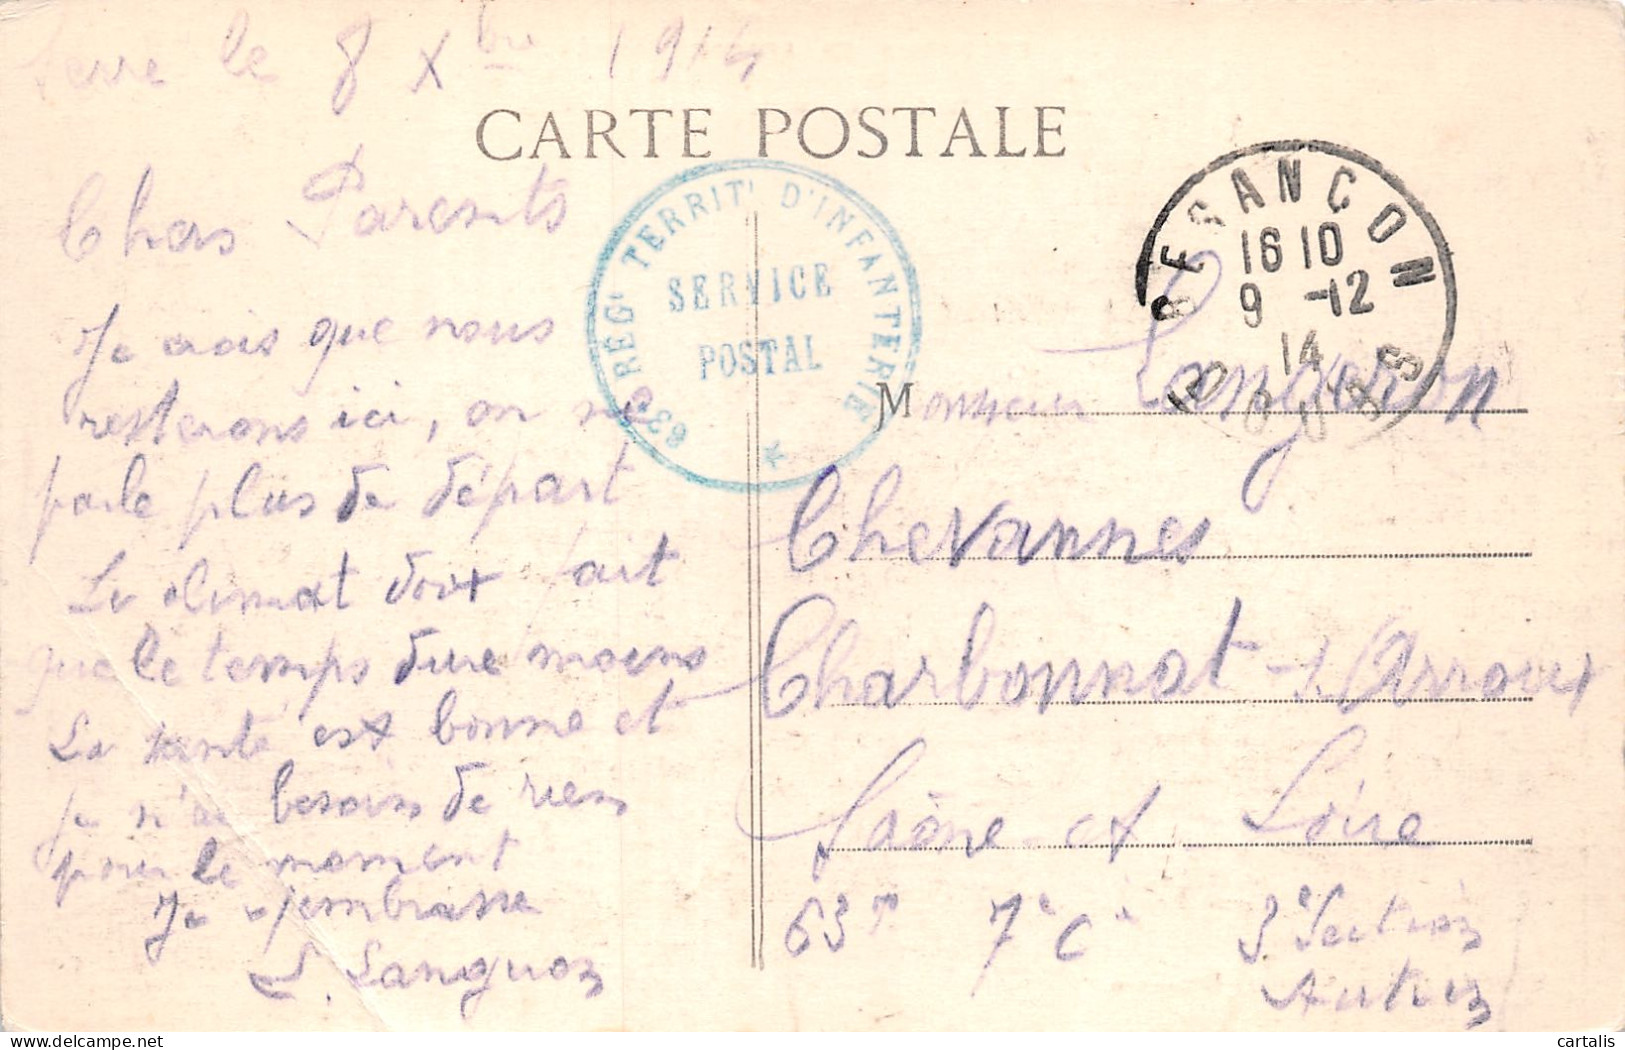 le 8 Xbre 1914
CARTE POSTALE
Chers Parents
Je crois que nous
resterons ici, on ne
parle plus de départ
Le climat doit fait
que le temps dure moins
La santé est bonne et
je n'ai besoin de rien
pour le moment
Je embrasse
L.
63e RÉGt TERRITl D'INFANTERIE
SERVICE
POSTAL
BESANCON
16 10
9 -12
14
DOUBS
Monsieur
Chevannes
Charbonnat-s/Arroux
Saône et Loire
63e 7e Cie 3e Section
cartalis.com